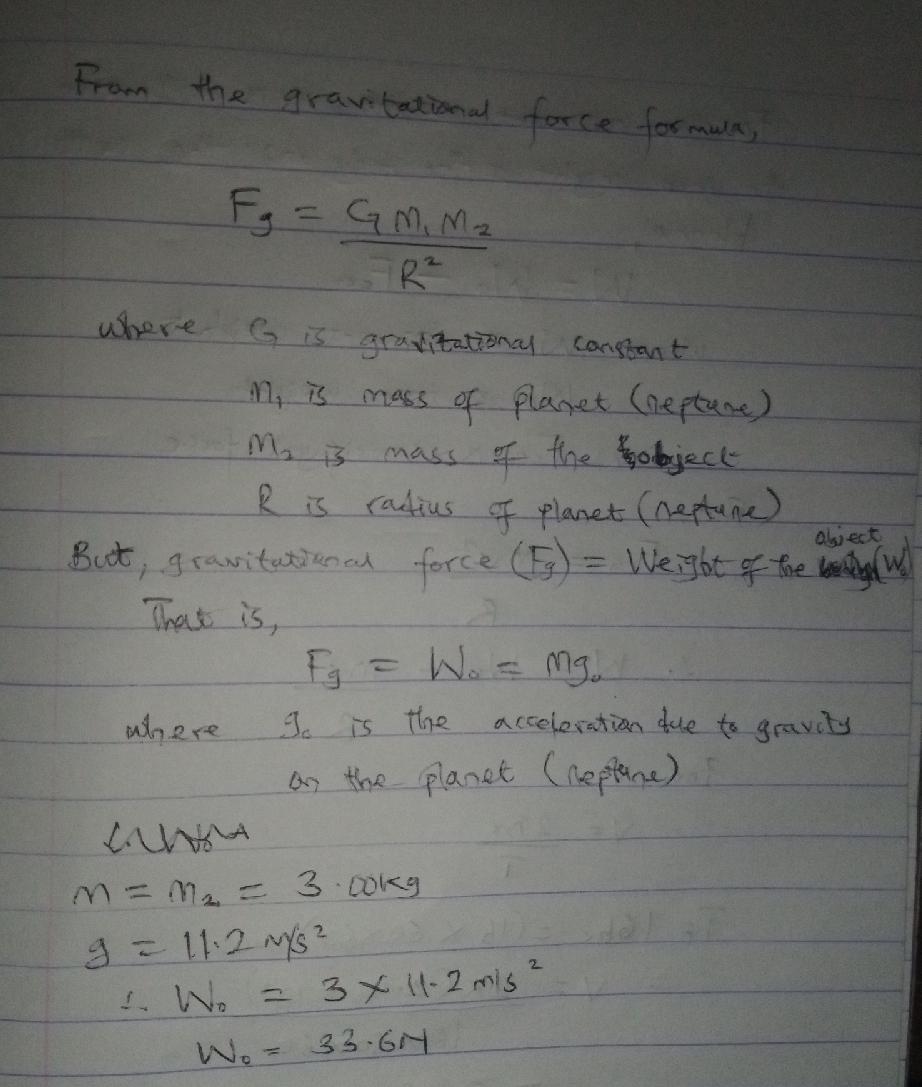 From the gravitational force formula,
Fg = G M₁ M₂
R²
where G is gravitational constant
M₁ is mass of planet (neptune)
M₂ is mass of the object
R is radius of planet (neptune)
But, gravitational force (Fg) = Weight of the object (W₀)
That is,
Fg = W₀ = mg₀
where g₀ is the acceleration due to gravity
on the planet (neptune)
m = M₂ = 3.00kg
g = 11.2 m/s²
∴ W₀ = 3 × 11.2 m/s²
W₀ = 33.6N